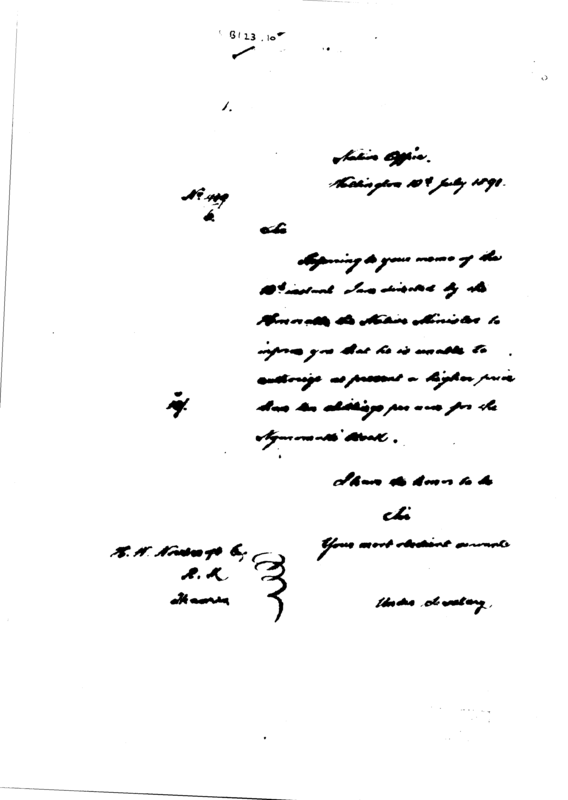 1.
Native Office.
Wellington 10th July 1891.
No 419
6.
Sir
Referring to your memo of the
instant I am directed by the
Honorable the Native Minister to
inform you that he is unable to
authorize at present a higher price
than ten shillings per acre for the
Block.
I have the honor to be
Sir
Your most obedient servant
Under Secretary.
R. M